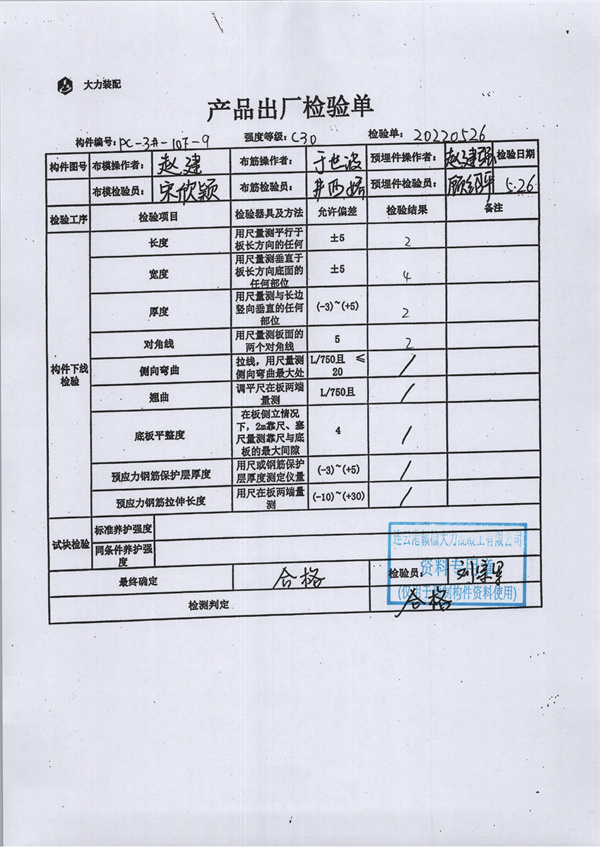 大力装配
产品出厂检验单
构件编号: PC-3#-10F-9 强度等级: C30 检验单: 20220526
构件图号 布模操作者: 赵建 布筋操作者: 于世波 预埋件操作者: 赵建强 检验日期
布模检验员: 宋欣颖 布筋检验员: 预埋件检验员: 5.26
检验工序 检验项目 检验器具及方法 允许偏差 检验结果 备注
构件下线检验
长度 用尺量测平行于板长方向的任何 ±5 2
宽度 用尺量测垂直于板长方向底面的任何部位 ±5 4
厚度 用尺量测与长边竖向垂直的任何部位 (-3)~(+5) 2
对角线 用尺量测板面的两个对角线 5 2
侧向弯曲 拉线，用尺量测侧向弯曲最大处 L/750且 ≤20 /
翘曲 调平尺在板两端量测 L/750且 /
底板平整度 在板侧立情况下，2m靠尺、塞尺量测靠尺与底板的最大间隙 4 /
预应力钢筋保护层厚度 用尺或钢筋保护层厚度测定仪量 (-3)~(+5) /
预应力钢筋拉伸长度 用尺在板两端量测 (-10)~(+30) /
试块检验 标准养护强度
同条件养护强度
最终确定 合格 检验员:
检测判定 合格
资料专用章